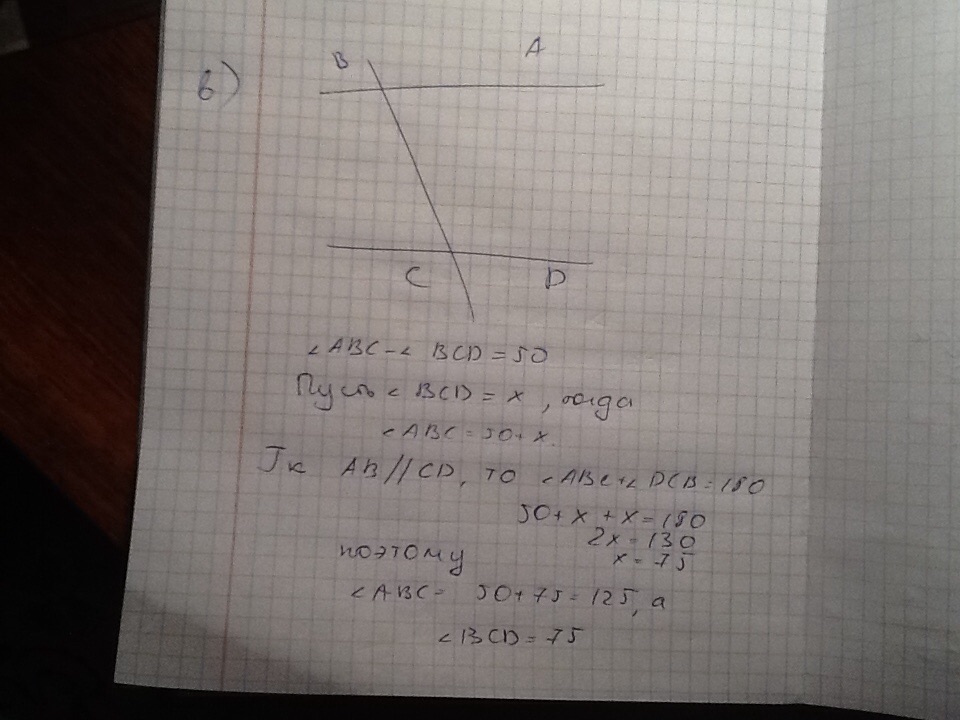 B A
в)
C D
∠ABC - ∠BCD = 50
Пусть ∠BCD = x, тогда
∠ABC = 50 + x.
Тк AB//CD, то ∠ABC + ∠DCB = 180
50 + x + x = 180
2x = 130
x = 75
поэтому
∠ABC = 50 + 75 = 125, а
∠BCD = 75